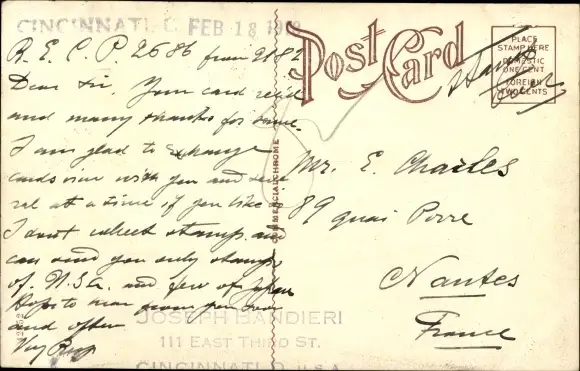 CINCINNATI, O. FEB 18
R. E. C. P. 2686 from 2182
Dear Sir. Your card rec'd
and many thanks for same.
I am glad to exchange
cards view with you and seve
ral at a time if you like
I don't collect stamps and
can send you only stamps
of U.S.A. and few of
Hope to hear from you
and often
Very Resp
JOSEPH BANDIERI
111 EAST THIRD ST.
CINCINNATI, O. U.S.A.
COMMERCIALCHROME
Post Card
PLACE
STAMP HERE
DOMESTIC
ONE CENT
FOREIGN
TWO CENTS
Mr. E. Charles
89 quai
Nantes
France